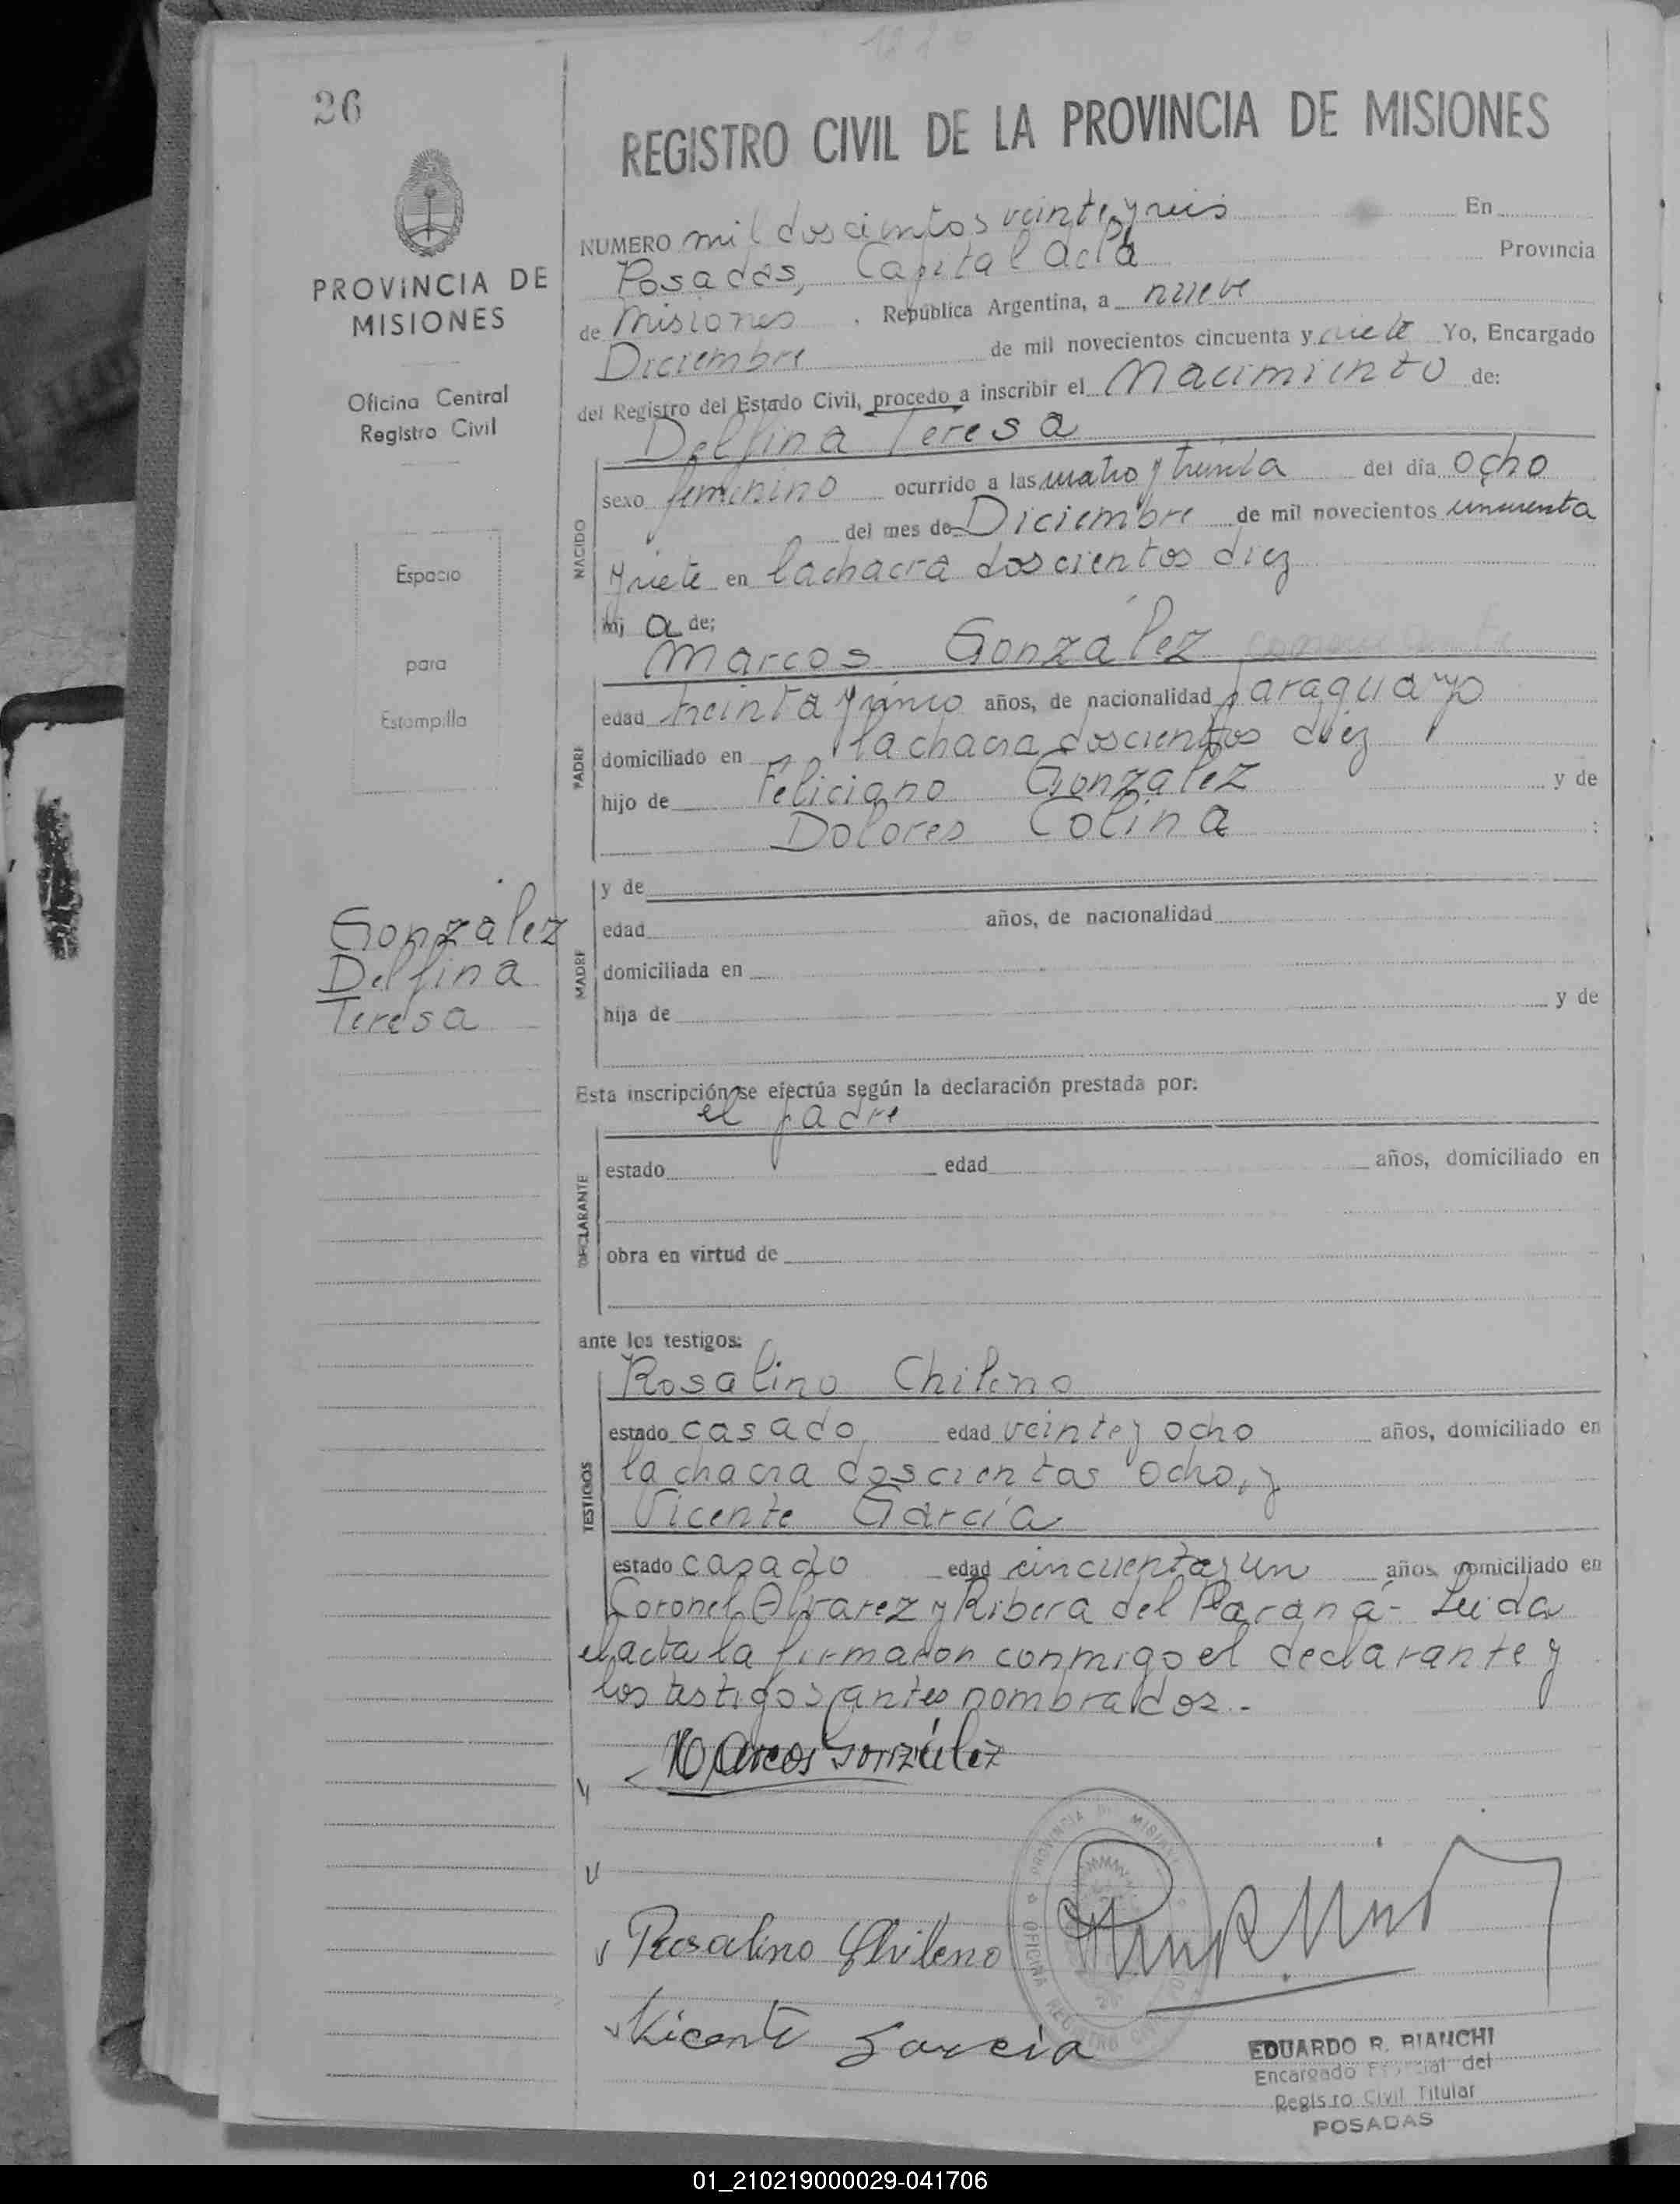 26
REGISTRO CIVIL DE LA PROVINCIA DE MISIONES
NUMERO mil doscientos veinte y seis En
Posadas, Capital Acta Provincia
de Misiones, República Argentina, a nueve
Diciembre de mil novecientos cincuenta y siete Yo, Encargado
del Registro del Estado Civil, procedo a inscribir el Nacimiento de:
Delfina Teresa
NACIDO
sexo femenino ocurrido a las cuatro y treinta del día ocho
del mes de Diciembre de mil novecientos cincuenta
y siete en la chacra doscientos diez
hij a de:
Marcos Gonzalez
PADRE
edad treinta y cinco años, de nacionalidad paraguayo
domiciliado en la chacra doscientos diez
hijo de Feliciano Gonzalez y de
Dolores Colina :
MADRE
y de
edad años, de nacionalidad
domiciliada en
hija de y de
Esta inscripción se efectúa según la declaración prestada por:
el padre
DECLARANTE
estado edad años, domiciliado en
obra en virtud de
ante los testigos:
Rosalino Chileno
TESTIGOS
estado casado, edad veinte y ocho años, domiciliado en
la chacra doscientos ocho, y
Vicente García
estado casado edad cincuenta y un años, domiciliado en
Coronel Alvarez y Ribera del Paraná - Leida
el acta la firmaron conmigo el declarante y
los testigos antes nombrados.-
Marcos González
Rosalino Chileno
Vicente Garcia
PROVINCIA DE MISIONES
OFICINA REGISTRO
EDUARDO R. BIANCHI
Encargado del
Registro Civil Titular
POSADAS
PROVINCIA DE
MISIONES
Oficina Central
Registro Civil
Espacio
para
Estampilla
Gonzalez
Delfina
Teresa
01_210219000029-041706